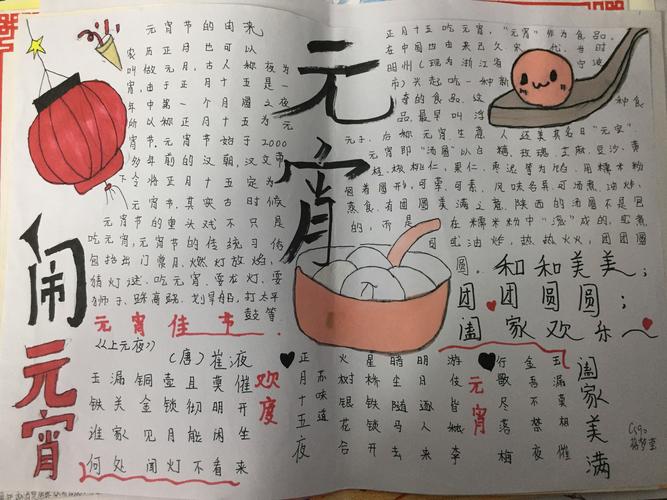 元宵
闹元宵
元宵节的由来
农历正月也可以
叫做元月,古人称夜为
宵,由于正月十五是一
年中第一个月圆之夜
所以称正月十五为元
宵节。元宵节始于2000
多年前的汉朝,汉文帝
下令将正月十五定为
元宵节。其实古时候
元宵节的重头戏不只是
吃元宵,元宵节的传统习俗
包括出门赏月、燃灯放焰、
猜灯谜、吃元宵、耍龙灯、耍
狮子、踩高跷、划旱船、打太平
鼓等.
元宵佳节.
正月十五吃元宵,“元宵”作为食品,
在中国也由来已久宋代,当时
明州(现为浙江省宁波
市)兴起吃一种新
奇的食品,这种食
品,最早叫浮
元子,后称元宵生意人还美其名曰“元宝”
元宵即“汤圆”以白糖、玫瑰、芝麻、豆沙、黄
桂、核桃仁、果仁、枣泥等为馅,用糯米粉
包着圆形,可荤,可素,风味各异,可汤煮,油炸,
蒸食,有团圆美满之意,陕西的汤圆不是包
的,而是在糯米粉中“滚”成的,或煮
或油炸,热热火火,团团圆
圆。
和和美美;
团团圆圆;
阖家欢乐~
阖家美满
《上元夜》
(唐)崔液
玉漏铜壶且莫催
铁关金锁彻明开
谁家见月能闲生
何处闻灯不看来
欢度
元宵
正月十五夜
苏味道
火树银花合
星桥铁锁开
暗尘随马去
明月逐人来
游伎皆
李
行歌尽落梅
金吾不禁夜
玉漏莫相催